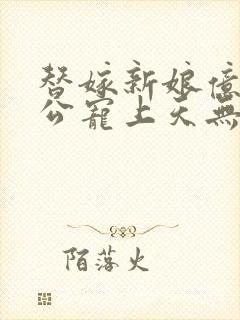 替嫁新娘億
公寵上天無
陌落火